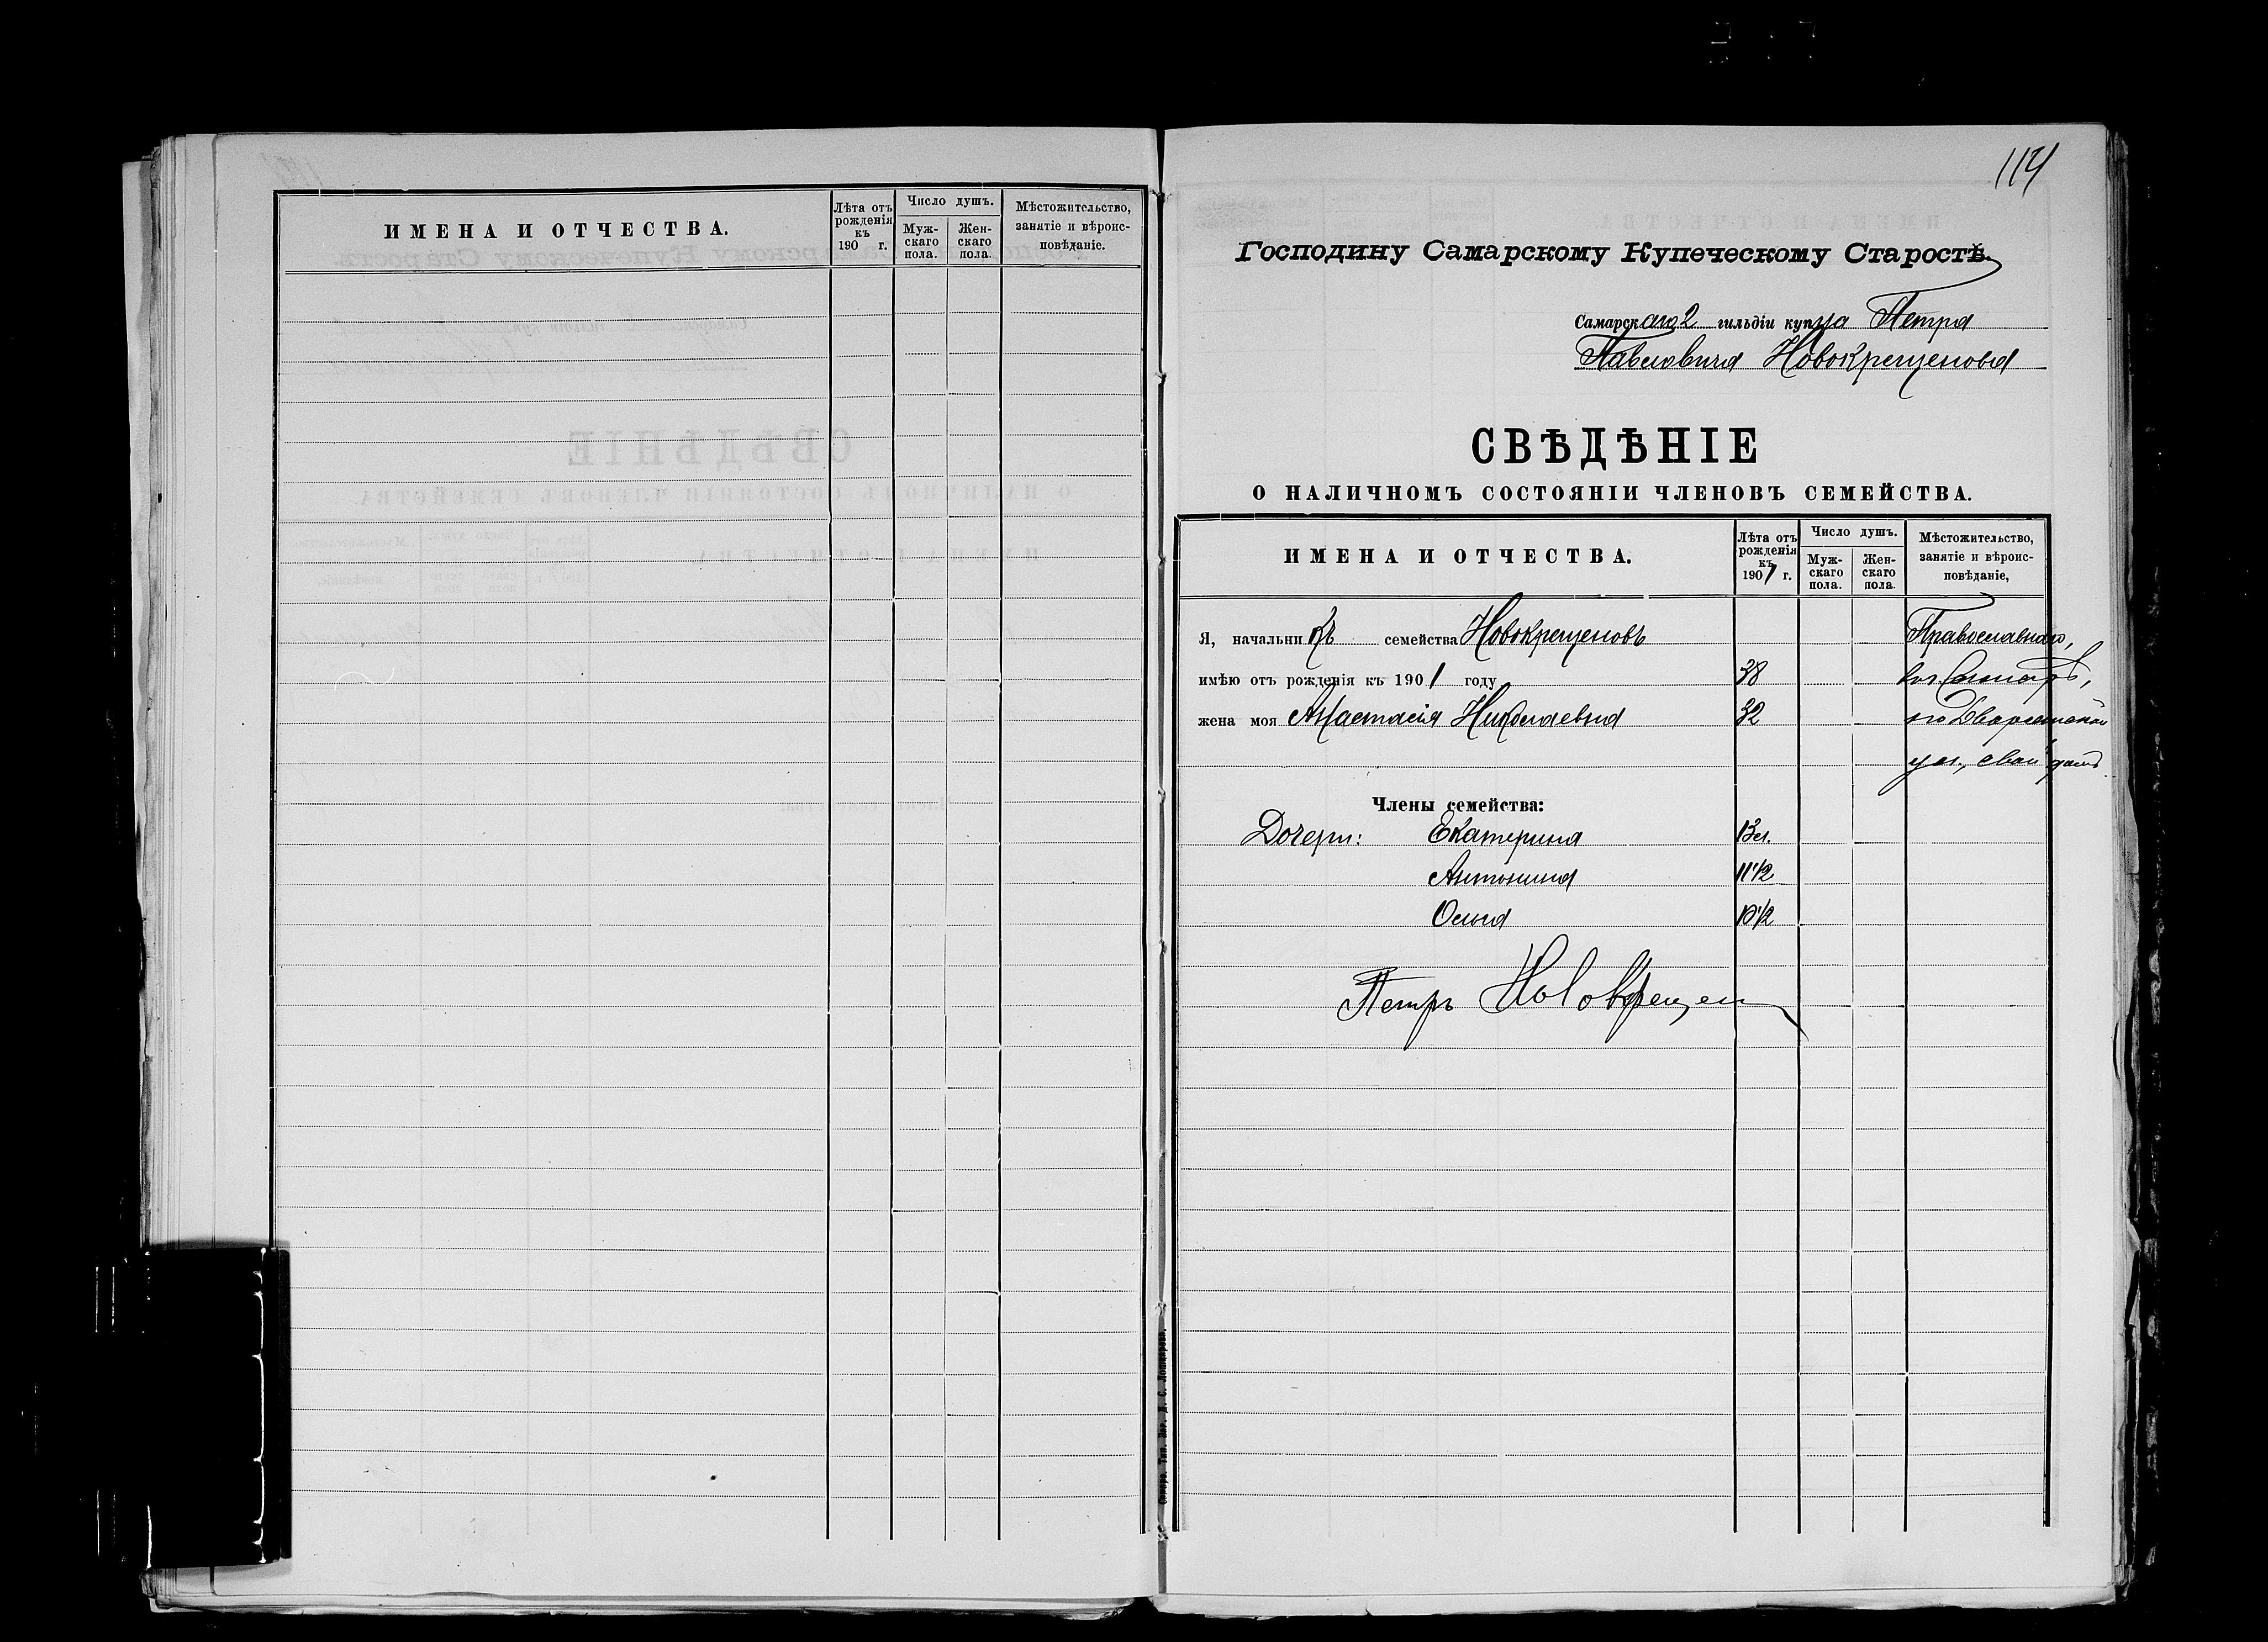 ИМЕНА И ОТЧЕСТВА.
Лѣта отъ рожденія къ 190 г.
Число душъ.
Мужскаго пола.
Женскаго пола.
Мѣстожительство, занятіе и вѣроисповѣданіе.
114
Господину Самарскому Купеческому Старостѣ.
Самарскаго 2 гильдіи купца Петра
Павловича Новокрещенова
СВѢДѢНІЕ
О НАЛИЧНОМЪ СОСТОЯНІИ ЧЛЕНОВЪ СЕМЕЙСТВА.
ИМЕНА И ОТЧЕСТВА.
Лѣта отъ рожденія къ 1901 г.
Число душъ.
Мужскаго пола.
Женскаго пола.
Мѣстожительство, занятіе и вѣроисповѣданіе,
Я, начальникъ семейства Новокрещеновъ Православнаго,
имѣю отъ рожденія къ 1901 году 38 въ Самарѣ,
жена моя Анастасія Николаевна 32 по Дворянской
ул., свой домъ
Члены семейства:
Дочери: Екатерина 13 л.
Антонина 11 1/2
Ольга 10 1/2
Петръ Новокрещен
Самара. Тип. Д. С. Лошкарева.